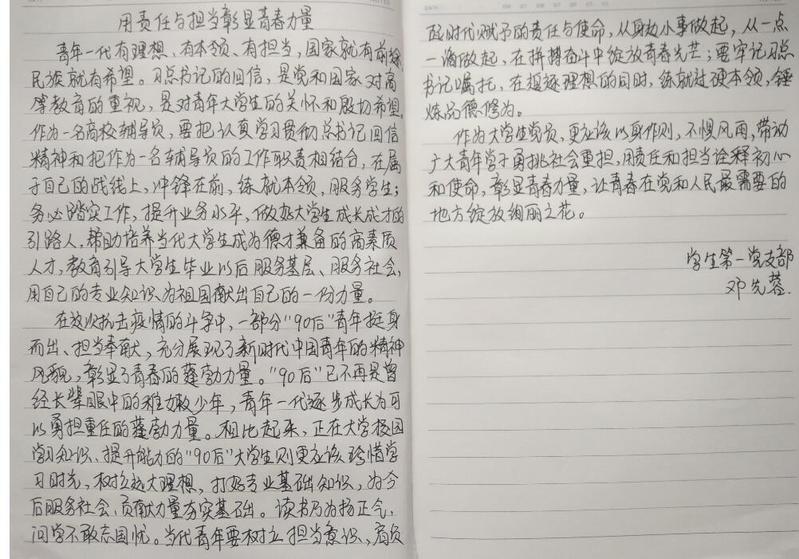 用责任与担当彰显青春力量
青年一代有理想、有本领、有担当，国家就有前途，
民族就有希望。习总书记的回信，是党和国家对高
等教育的重视，是对青年大学生的关怀和殷切希望。
作为一名高校辅导员，要把认真学习贯彻总书记回信
精神和把作为一名辅导员的工作职责相结合，在属
于自己的战线上，冲锋在前，练就本领、服务学生；
务必踏实工作，提升业务水平，做好大学生成长成才的
引路人，帮助培养当代大学生成为德才兼备的高素质
人才，教育引导大学生毕业以后服务基层、服务社会，
用自己的专业知识为祖国献出自己的一份力量。
在这次抗击疫情的斗争中，一部分"90后"青年挺身
而出、担当奉献，充分展现了新时代中国青年的精神
风貌，彰显了青春的蓬勃力量。"90后"已不再是曾
经长辈眼中的稚嫩少年，青年一代逐步成长为可
以勇担重任的蓬勃力量。相比起来，正在大学校园
学习知识、提升能力的"90后"大学生则更应该珍惜学
习时光，树立远大理想，打好专业基础知识，为今
后服务社会、贡献力量夯实基础。读书乃为扬正气，
问学不敢忘国忧。当代青年要树立担当意识，肩负
起时代赋予的责任与使命，从身边小事做起，从一点
一滴做起，在拼搏奋斗中绽放青春光芒；要牢记习总
书记嘱托，在追逐理想的同时，练就过硬本领，锤
炼品德修为。
作为大学生党员，更应该以身作则，不惧风雨，带动
广大青年学子勇挑社会重担，用责任和担当诠释初心
和使命，彰显青春力量，让青春在党和人民最需要的
地方绽放绚丽之花。
学生第一党支部
邓先蓉